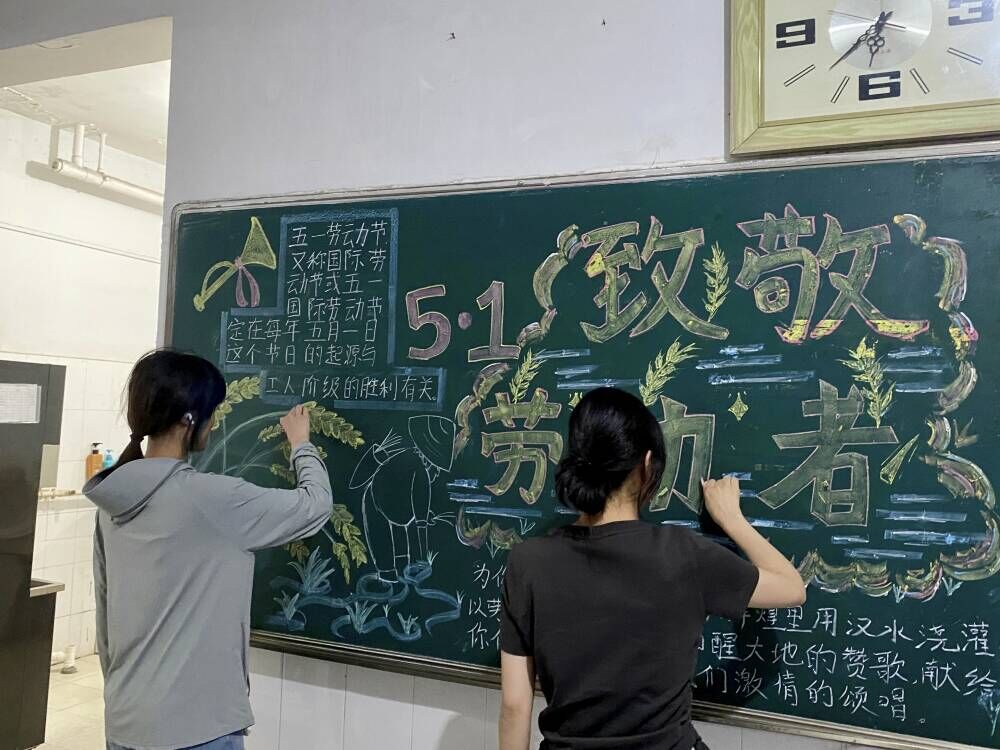 9 3
6
五一劳动节
又称国际劳
动节或五一
国际劳动节
定在每年五月一日
这个节日的起源与
工人阶级的胜利有关
5·1
致敬
劳动者
为 煌里用汉水浇灌
以劳 醒大地的赞歌,献给
你 们激情的颂唱。